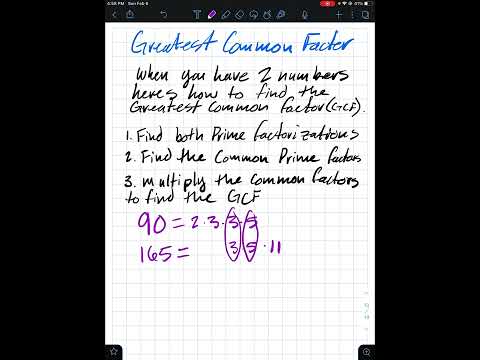 4:58 PM Sun Feb 6
41%
Greatest Common Factor
When you have 2 numbers
heres how to find the
Greatest Common factor (GCF).
1. Find both Prime factorizations
2. Find the Common Prime factors
3. multiply the common factors
to find the GCF
90 = 2·3·3·5
165 = 3 5 ·11